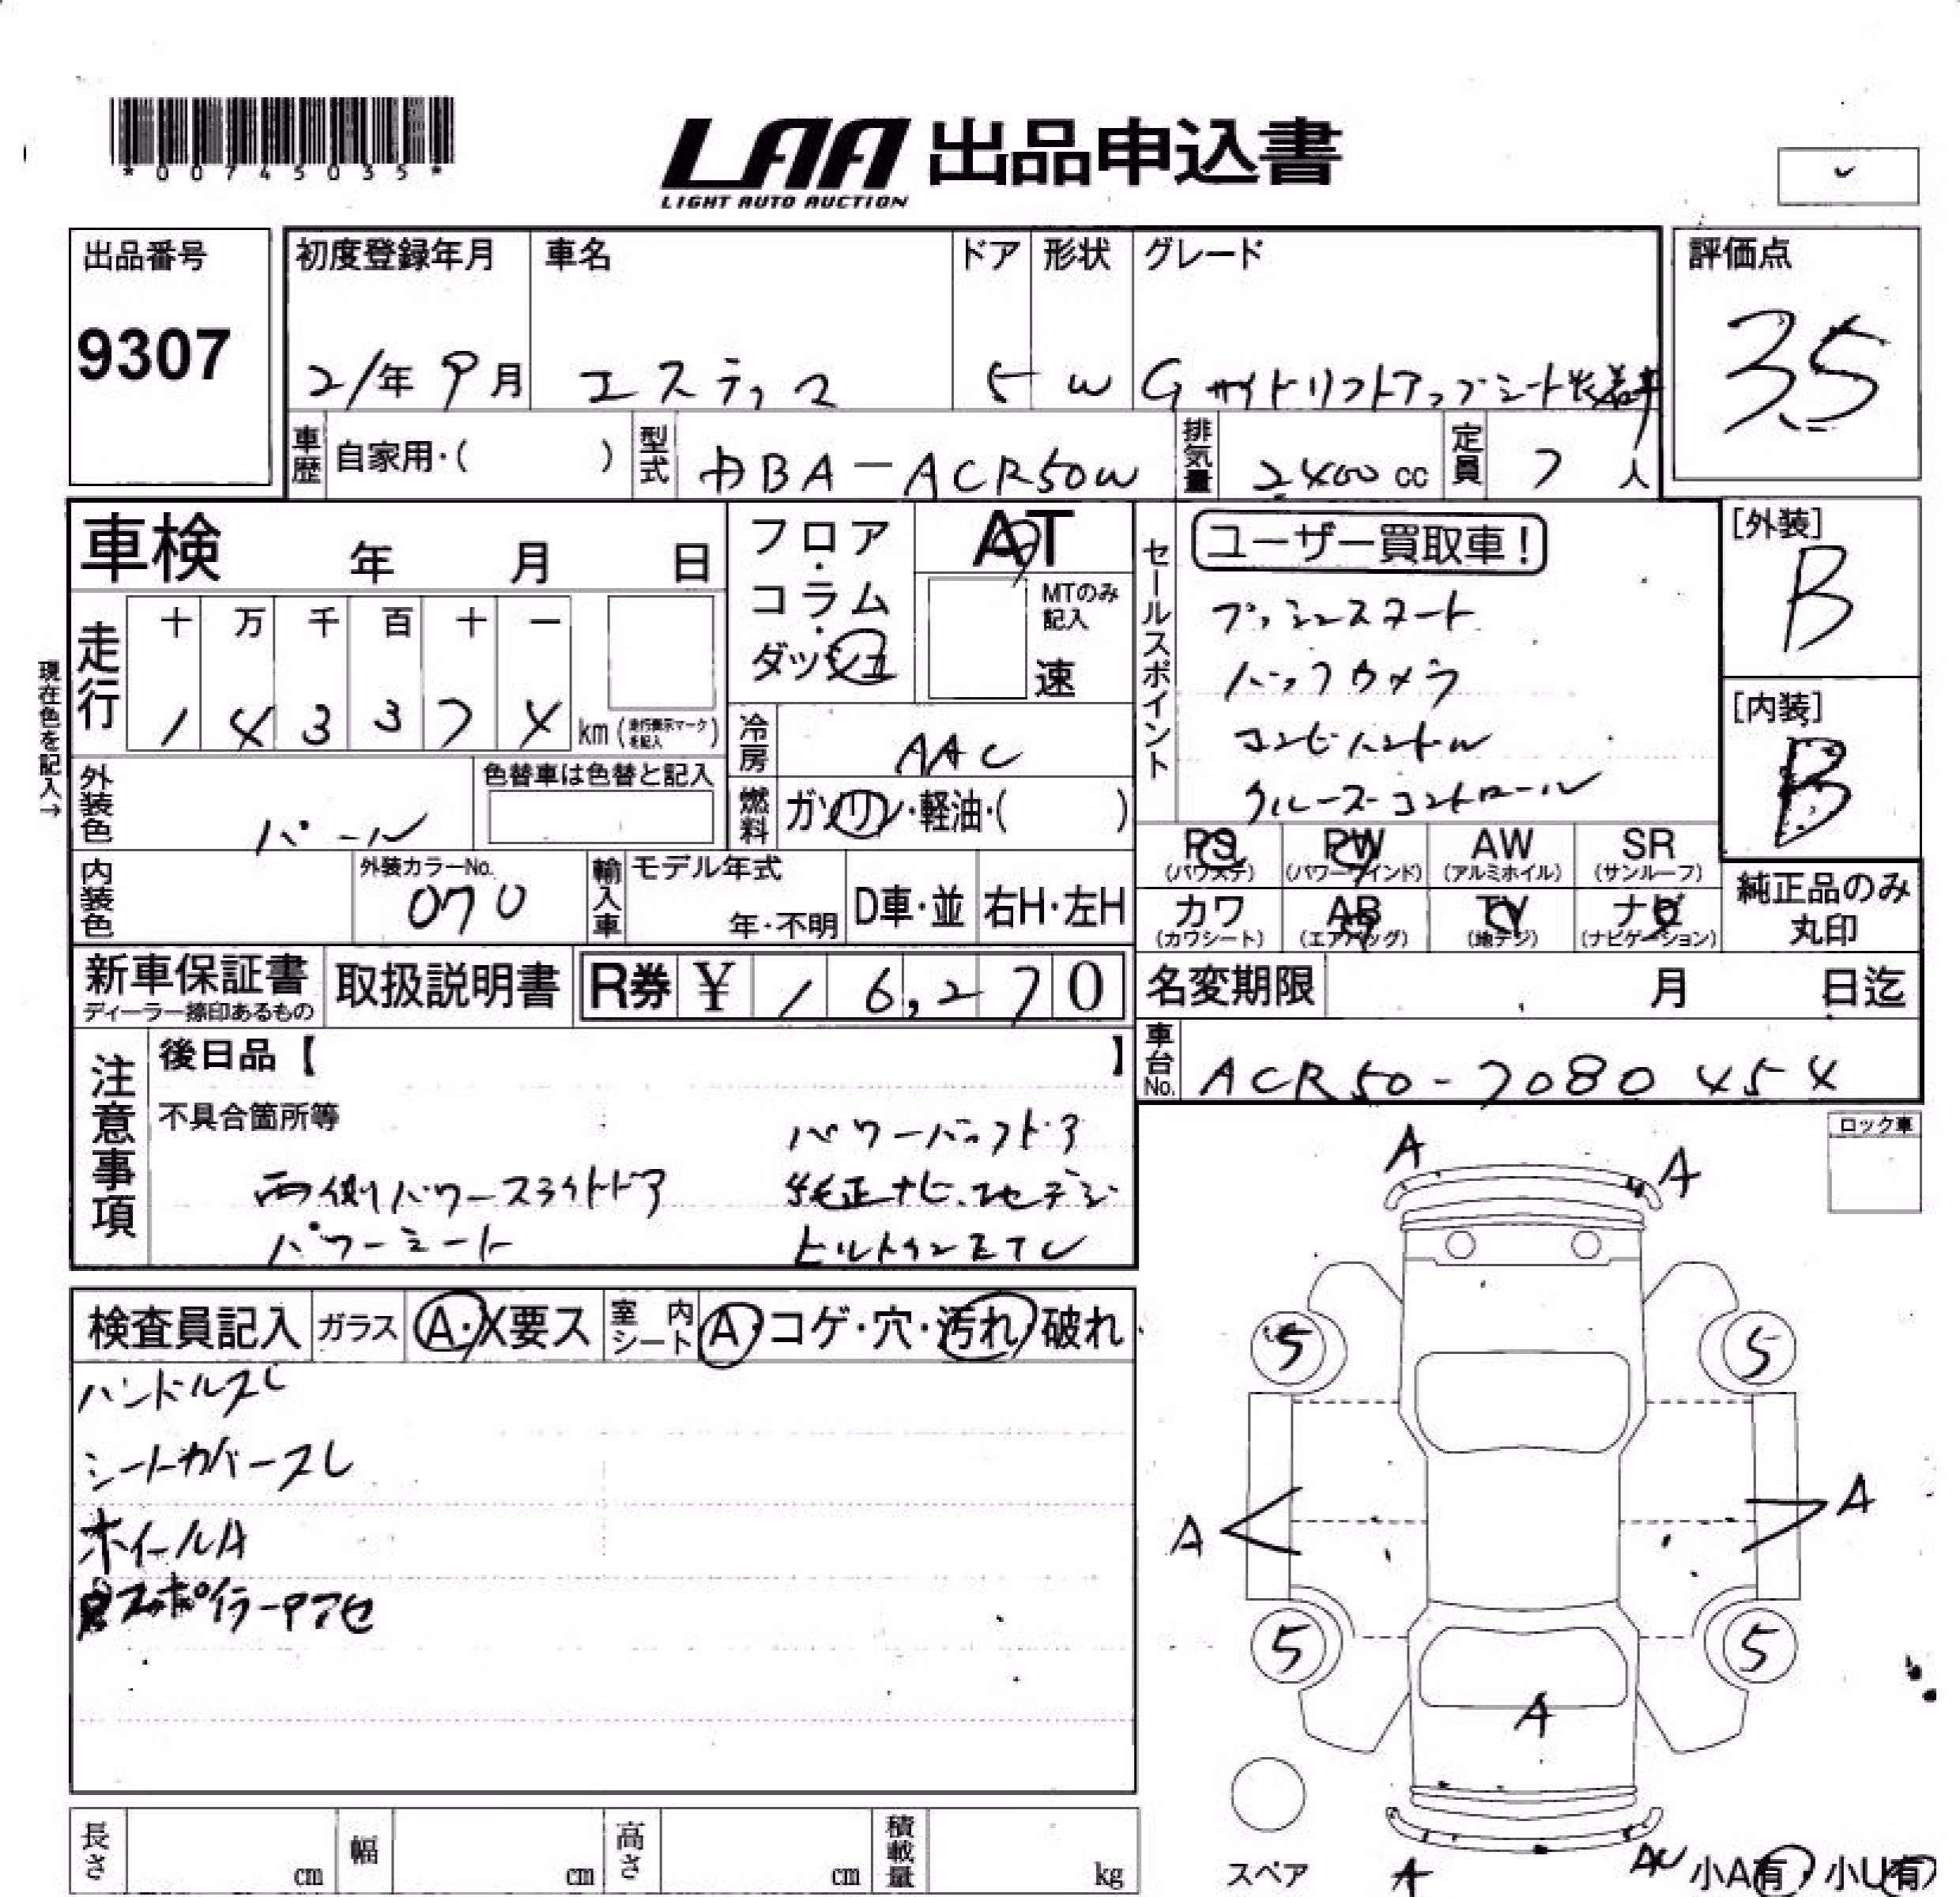 *00745035*
LAA 出品申込書
LIGHT AUTO AUCTION
出品番号 初度登録年月 車名 ドア 形状 グレード 評価点
9307 21年 9月 エスティマ 5 W G サイドリフトアップシート装着車 3.5
車歴 自家用・( ) 型式 DBA-ACR50W 排気量 2400cc 定員 7人
車検 年 月 日 フロア・コラム・ダッシュ AT
MTのみ記入 速
セールスポイント ユーザー買取車!
プッシュスタート
バックカメラ
コンビハンドル
クルーズコントロール
[外装] B
[内装] B
現在色を記入→
走行 十 万 千 百 十 一
1 4 3 3 7 4 km(走行表示マークを記入)
冷房 AAC
外装色 パール 色替車は色替と記入
燃料 ガソリン・軽油・( )
PS (パワステ) PW (パワーウインド) AW (アルミホイル) SR (サンルーフ)
カワ (カワシート) AB (エアバッグ) TV (地デジ) ナビ (ナビゲーション)
純正品のみ丸印
内装色 外装カラーNo. 070 輸入車 モデル年式 年・不明 D車・並 右H・左H
新車保証書 ディーラー捺印あるもの 取扱説明書 R券 ¥ 16,270
名変期限 月 日迄
車台No. ACR50-7080454
注意事項 後日品【 】
不具合箇所等
パワーバックドア
両側パワースライドドア 純正ナビ、地デジ
パワーシート ビルトインETC
ロック車
検査員記入 ガラス A・X要ス 室内シート A・コゲ・穴・汚れ・破れ
ハンドルスレ
シートカバースレ
ホイールA
スポイラーアフセ
A A
5 5
A A
5 5
A
A AU
スペア 小A有 小U有
長さ cm 幅 cm 高さ cm 積載量 kg